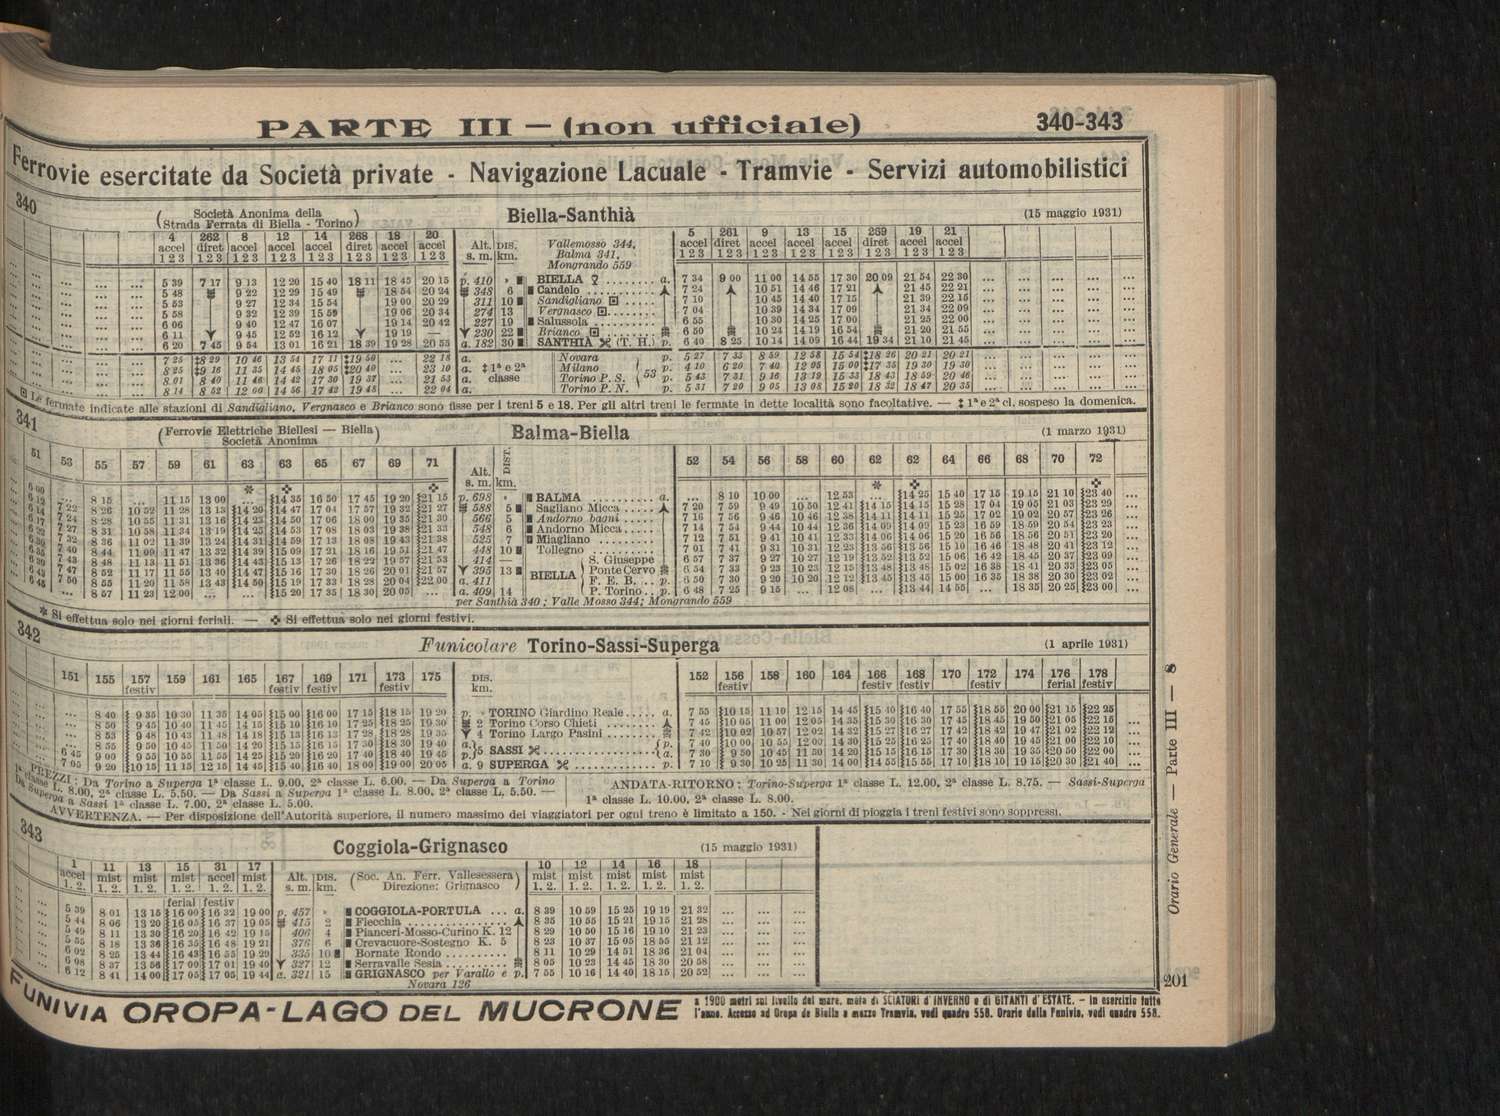 PARTE III — (non ufficiale)
340-343
Ferrovie esercitate da Società private - Navigazione Lacuale - Tramvie - Servizi automobilistici
340
(Società Anonima della
Strada Ferrata di Biella - Torino)
Biella-Santhià
(15 maggio 1931)
4 262 8 12 14 268 18 20
accel diret accel accel accel diret accel accel
1 2 3 1 2 3 1 2 3 1 2 3 1 2 3 1 2 3 1 2 3 1 2 3
Alt. s. m. DIS. km.
Vallemosso 344,
Balma 341,
Mongrando 559
5 261 9 13 15 269 19 21
accel diret accel accel accel diret accel accel
1 2 3 1 2 3 1 2 3 1 2 3 1 2 3 1 2 3 1 2 3 1 2 3
5 39 7 17 9 13 12 20 15 40 18 11 18 45 20 15 p. 410 » BIELLA a. 7 34 9 00 11 00 14 55 17 30 20 09 21 54 22 30
5 48 9 22 12 29 15 49 18 54 20 24 348 6 Candelo 7 24 10 51 14 46 17 21 21 45 22 21
5 53 9 27 12 34 15 54 19 00 20 29 311 10 Sandigliano 7 10 10 45 14 40 17 15 21 39 22 15
5 58 9 32 12 39 15 59 19 06 20 34 274 13 Vergnasco 7 04 10 39 14 34 17 09 21 34 22 09
6 06 9 40 12 47 16 07 19 14 20 42 227 19 Salussola 6 55 10 30 14 25 17 00 21 25 22 00
6 11 9 45 12 52 16 12 19 19 — 230 22 Brianco 6 50 10 24 14 19 16 54 21 20 21 55
6 20 7 45 9 54 13 01 16 21 18 39 19 28 20 55 a. 182 30 SANTHIÀ (T. H.) p. 6 40 8 25 10 14 14 09 16 44 19 34 21 10 21 45
7 25 ‡8 29 10 46 13 54 17 11 ‡19 50 ... 22 18 a. Novara p. 5 27 7 33 8 59 12 58 15 54 ‡18 26 20 21 20 21
8 25 ‡9 16 11 35 14 45 18 05 ‡20 40 ... 23 10 a. ‡ 1ª e 2ª Milano p. 4 10 6 20 7 40 12 05 15 00 ‡17 35 19 30 19 30
8 01 8 40 11 46 14 42 17 30 19 37 ... 21 53 a. classe Torino P. S. 53 p. 5 43 7 31 9 16 13 19 15 33 18 43 18 59 20 46
8 14 8 52 12 00 14 56 17 42 19 48 ... 22 04 a. Torino P. N. p. 5 31 7 20 9 05 13 08 15 20 18 32 18 47 20 35
Le fermate indicate alle stazioni di Sandigliano, Vergnasco e Brianco sono fisse per i treni 5 e 18. Per gli altri treni le fermate in dette località sono facoltative. — ‡ 1ª e 2ª cl. sospeso la domenica.
341
(Ferrovie Elettriche Biellesi — Biella)
Società Anonima
Balma-Biella
(1 marzo 1931)
51 53 55 57 59 61 63 63 65 67 69 71 Alt. s. m. DIST. km. 52 54 56 58 60 62 62 64 66 68 70 72
6 00 ... 8 15 ... 11 15 13 00 14 35 16 50 17 45 19 20 21 15 p. 698 » BALMA a. ... 8 10 10 00 ... 12 53 ... 14 25 15 40 17 15 19 15 21 10 23 40
6 12 7 22 8 26 10 52 11 28 13 13 14 20 14 47 17 04 17 57 19 32 21 27 588 5 Sagliano Micca 7 20 7 59 9 49 10 50 12 41 14 15 14 15 15 28 17 04 19 05 21 03 23 29
6 14 7 24 8 28 10 55 11 31 13 16 14 23 14 50 17 06 18 00 19 35 21 30 566 5 Andorno bagni 7 16 7 56 9 46 10 46 12 38 14 11 14 11 15 25 17 02 19 02 20 57 23 26
6 17 7 27 8 31 10 58 11 34 13 19 14 25 14 53 17 08 18 03 19 38 21 33 548 6 Andorno Micca 7 14 7 54 9 44 10 44 12 36 14 09 14 09 15 23 16 59 18 59 20 54 23 23
7 32 8 36 11 02 11 39 13 24 14 31 14 59 17 13 18 08 19 43 21 38 525 7 Miagliano 7 12 7 51 9 41 10 41 12 33 14 06 14 06 15 20 16 56 18 56 20 51 23 20
7 40 8 44 11 09 11 47 13 32 14 39 15 09 17 21 18 16 19 51 21 47 448 10 Tollegno 7 01 7 41 9 31 10 31 12 23 13 56 13 56 15 10 16 46 18 48 20 41 23 12
7 43 8 48 11 13 11 51 13 36 14 43 15 13 17 26 18 22 19 57 21 53 414 — S. Giuseppe 6 57 7 37 9 27 10 27 12 19 13 52 13 52 15 06 16 42 18 45 20 37 23 09
7 47 8 52 11 17 11 55 13 40 14 47 15 16 17 30 18 26 20 01 21 57 395 13 BIELLA Ponte Cervo 6 54 7 33 9 23 10 23 12 15 13 48 13 48 15 02 16 38 18 41 20 33 23 05
6 48 7 50 8 55 11 20 11 58 13 43 14 50 15 19 17 33 18 28 20 04 22 00 a. 411 F. E. B. p. 6 50 7 30 9 20 10 20 12 12 13 45 13 45 15 00 16 35 18 38 20 30 23 02
... 8 57 11 23 12 00 ... ... 15 20 17 35 18 30 20 05 ... a. 409 14 P. Torino p. 6 48 7 25 9 15 ... 12 08 ... 13 44 14 55 ... 18 35 20 25 23 00
per Santhià 340; Valle Mosso 344; Mongrando 559
* Si effettua solo nei giorni feriali. — ✤ Si effettua solo nei giorni festivi.
342
Funicolare Torino-Sassi-Superga
(1 aprile 1931)
151 155 157 159 161 165 167 169 171 173 175 DIS. km. 152 156 158 160 164 166 168 170 172 174 176 178
festiv festiv festiv festiv festiv festiv festiv festiv ferial festiv
... 8 40 9 35 10 30 11 35 14 05 15 00 16 00 17 15 18 15 19 20 p. » TORINO Giardino Reale a. 7 55 10 15 11 10 12 15 14 45 15 40 16 40 17 55 18 55 20 00 21 15 22 25
... 8 50 9 45 10 40 11 45 14 15 15 10 16 10 17 25 18 25 19 30 2 Torino Corso Chieti 7 45 10 05 11 00 12 05 14 35 15 30 16 30 17 45 18 45 19 50 21 05 22 15
... 8 53 9 48 10 43 11 48 14 18 15 13 16 13 17 28 18 28 19 35 4 Torino Largo Pasini 7 42 10 02 10 57 12 02 14 32 15 27 16 27 17 42 18 42 19 47 21 02 22 12
... 8 55 9 50 10 45 11 50 14 20 15 15 16 15 17 30 18 30 19 40 a. 5 SASSI p. 7 40 10 00 10 55 12 00 14 30 15 25 16 25 17 40 18 40 19 45 21 00 22 10
6 45 9 00 9 55 10 55 11 55 14 25 15 20 16 20 17 40 18 40 19 45 p. a. 7 30 9 50 10 45 11 50 14 20 15 15 16 15 17 30 18 30 19 35 20 50 22 00
7 05 9 20 10 15 11 15 12 15 14 45 15 40 16 40 18 00 19 00 20 05 a. 9 SUPERGA p. 7 10 9 30 10 25 11 30 14 00 14 55 15 55 17 10 18 10 19 15 20 30 21 40
PREZZI: Da Torino a Superga 1ª classe L. 9.00, 2ª classe L. 6.00. — Da Superga a Torino
1ª classe L. 8.00, 2ª classe L. 5.50. — Da Sassi a Superga 1ª classe L. 8.00, 2ª classe L. 5.50. —
Da Superga a Sassi 1ª classe L. 7.00, 2ª classe L. 5.00.
ANDATA-RITORNO: Torino-Superga 1ª classe L. 12.00, 2ª classe L. 8.75. — Sassi-Superga
1ª classe L. 10.00, 2ª classe L. 8.00.
AVVERTENZA. — Per disposizione dell'Autorità superiore, il numero massimo dei viaggiatori per ogni treno è limitato a 150. - Nei giorni di pioggia i treni festivi sono soppressi.
343
Coggiola-Grignasco
(15 maggio 1931)
1 11 13 15 31 17 Alt. s. m. DIS. km. (Soc. An. Ferr. Vallesessera) 10 12 14 16 18
accel mist mist mist accel mist Direzione: Grignasco mist mist mist mist mist
1. 2. 1. 2. 1. 2. 1. 2. 1. 2. 1. 2. 1. 2. 1. 2. 1. 2. 1. 2. 1. 2.
ferial festiv
5 39 8 01 13 15 16 00 16 32 19 00 p. 457 » COGGIOLA-PORTULA a. 8 39 10 59 15 25 19 19 21 32
5 44 8 06 13 20 16 05 16 37 19 05 415 2 Flecchia 8 35 10 55 15 21 19 15 21 28
5 49 8 11 13 30 16 20 16 42 19 15 406 4 Pianceri-Mosso-Curino K. 12 8 29 10 50 15 16 19 10 21 23
5 55 8 18 13 36 16 35 16 48 19 21 376 6 Crevacuore-Sostegno K. 5 8 23 10 37 15 05 18 55 21 12
6 02 8 25 13 44 16 43 16 55 19 29 335 10 Bornate Rondo 8 11 10 29 14 51 18 36 21 04
6 08 8 37 13 56 17 00 17 01 19 40 327 12 Serravalle Sesia 8 05 10 23 14 45 18 30 20 58
6 12 8 41 14 00 17 05 17 05 19 44 a. 321 15 GRIGNASCO per Varallo e p. 7 55 10 16 14 40 18 15 20 52
Novara 126
Orario Generale — Parte III — 8
201
FUNIVIA OROPA-LAGO DEL MUCRONE
a 1900 metri sul livello del mare, meta di SCIATORI d'INVERNO e di GITANTI d'ESTATE. - In esercizio tutto
l'anno. Accesso ad Oropa da Biella a mezzo Tramvia, vedi quadro 558. Orario della Funivia, vedi quadro 558.